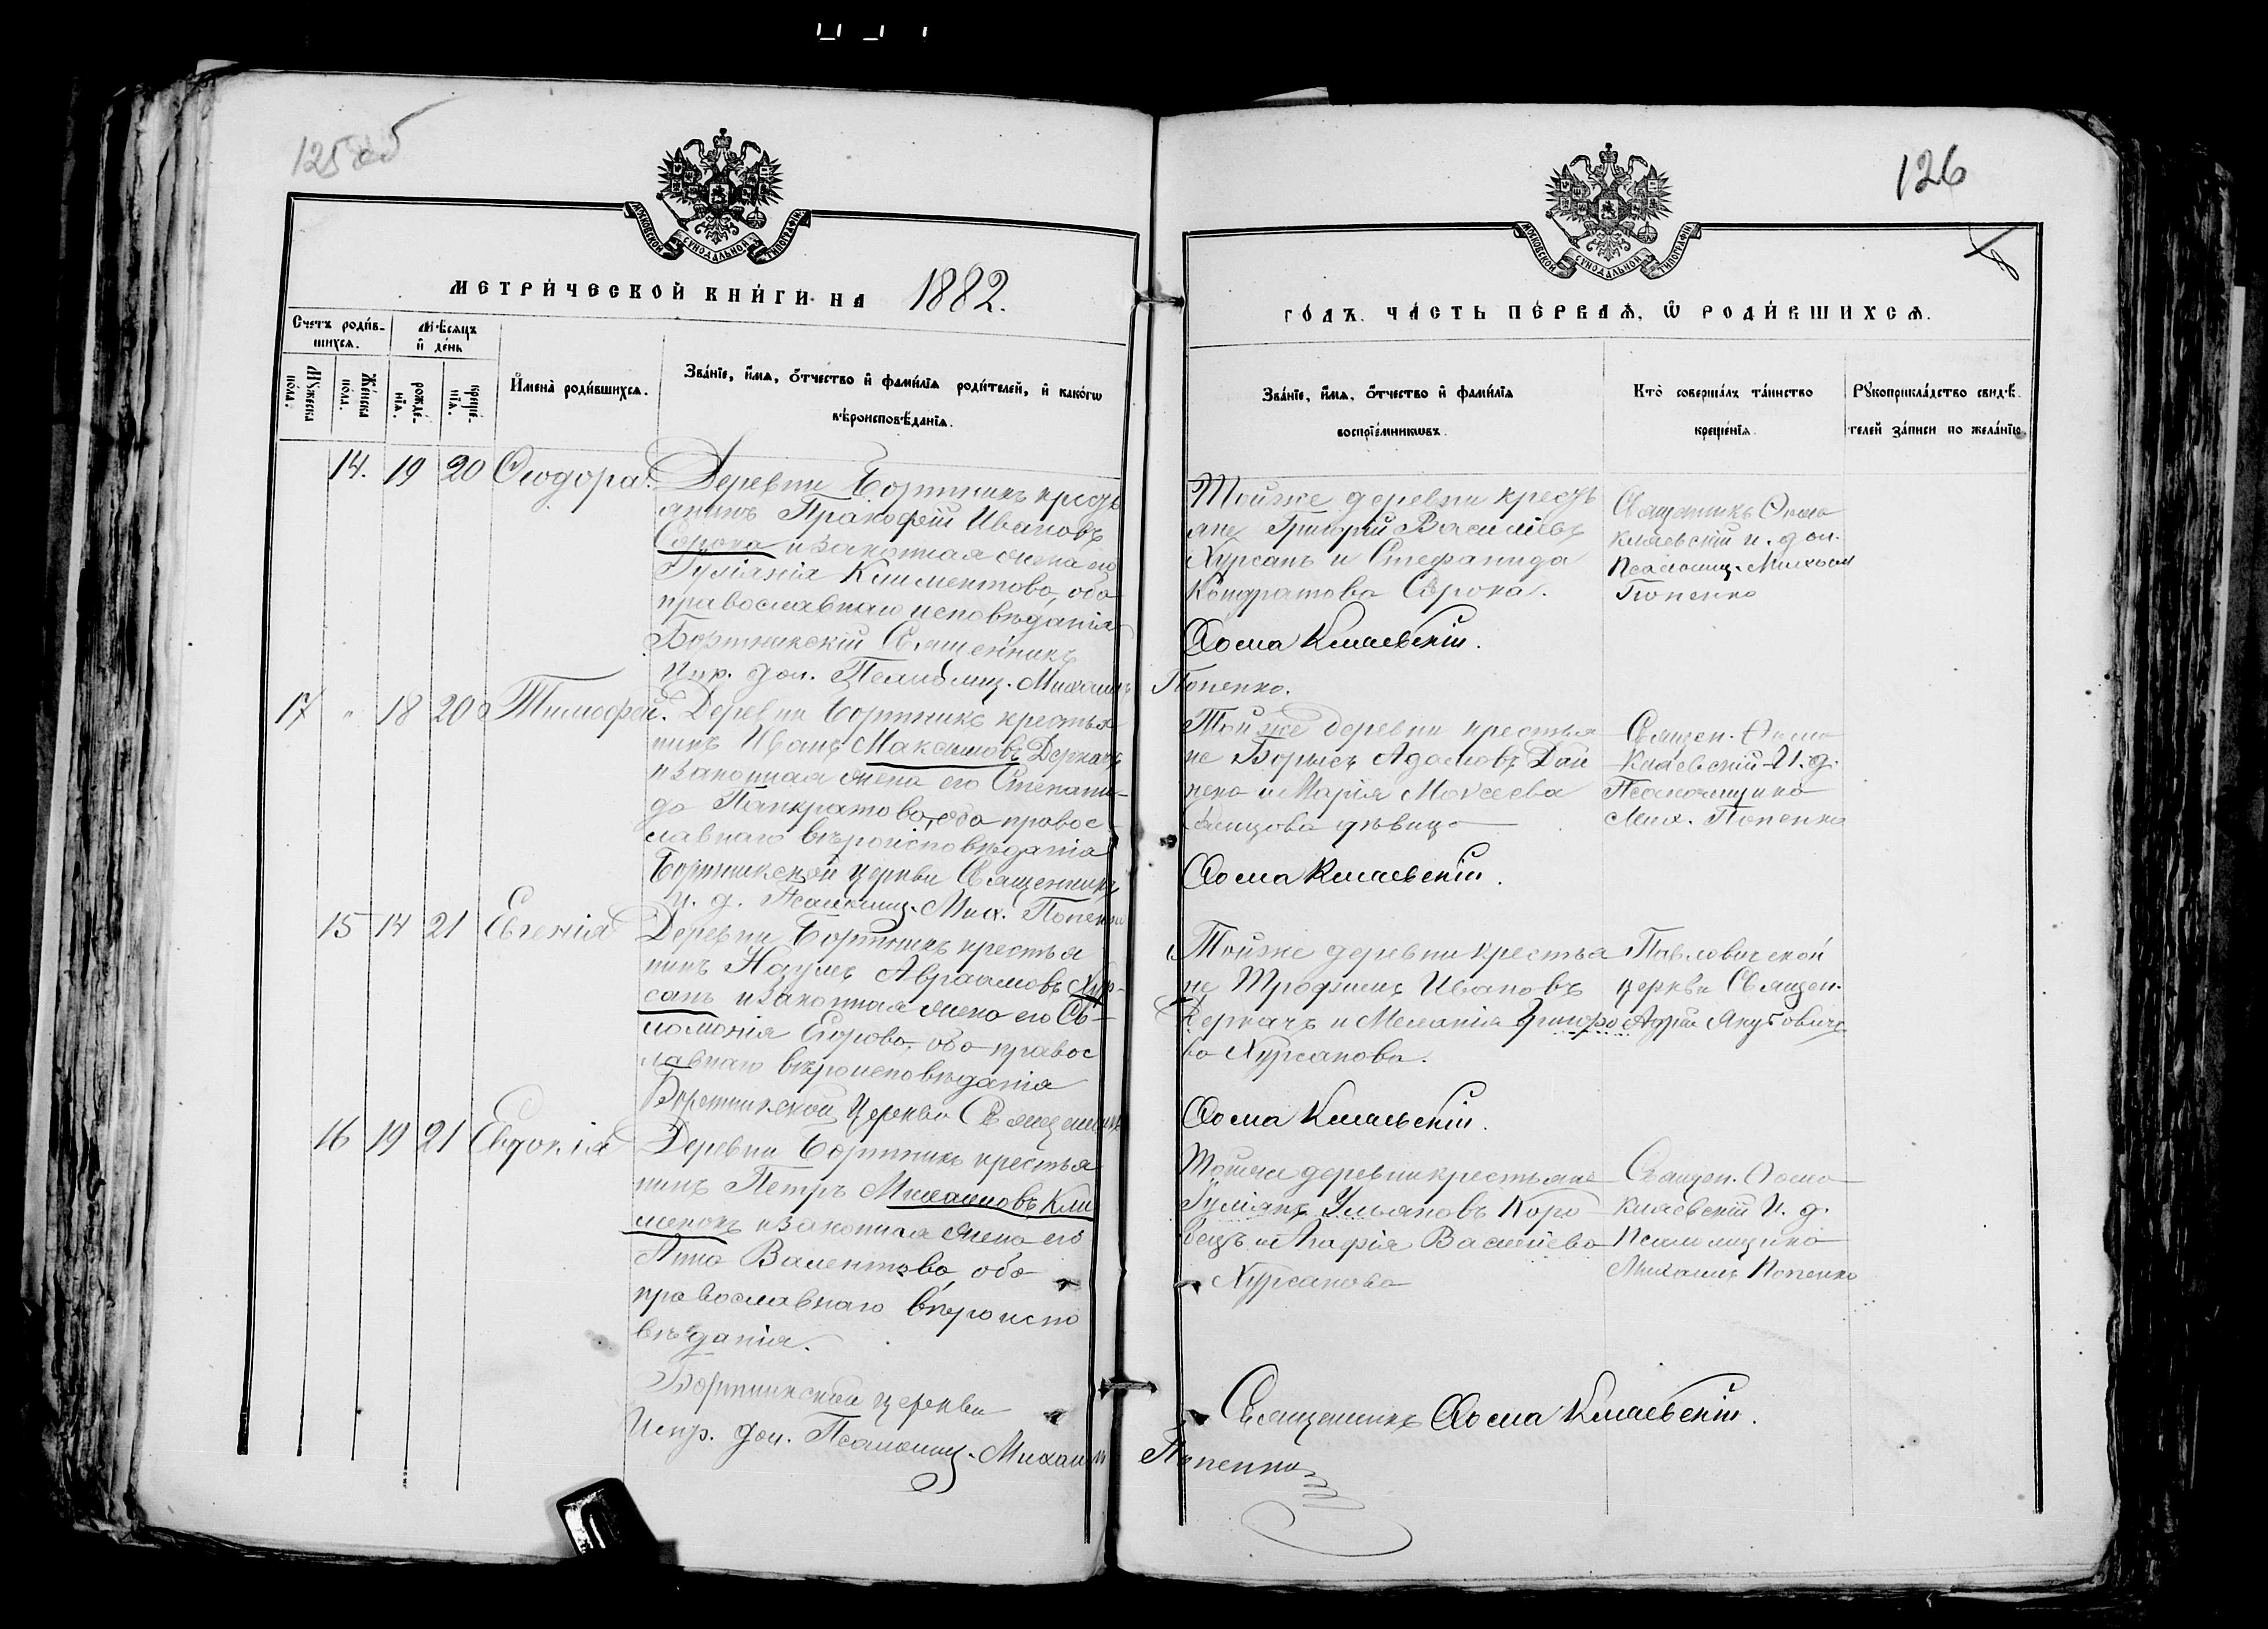 125 об
126
МОСКОВСКОЙ СѴНОДАЛЬНОЙ ТИПОГРАФІИ
МОСКОВСКОЙ СѴНОДАЛЬНОЙ ТИПОГРАФІИ
МЕТРИ́ЧЕСКОЙ КНИ́ГИ НА 1882.
ГО́ДЪ. ЧА́СТЬ ПЕ́РВАѦ, Ѿ РОДИ́ВШИХСѦ.
Счетъ роди́в-
шихсѧ.
Мѣсѧцъ
и҆ де́нь
Мꙋжеска
по́ла.
Же́нска
по́ла.
рожде́-
нїѧ.
креще́-
нїѧ.
И҆мена̀ роди́вшихсѧ.
Зва́нїе, и҆́мѧ, ѻ҆́тчество и҆ фамѝлїѧ роди́телей, и҆ како́гѡ
вѣроисповѣ́данїѧ.
Зва́нїе, и҆́мѧ, ѻ҆́тчество и҆ фамѝлїѧ
воспрїе́мникѡвъ.
Кто̀ соверша́лъ та́инство
креще́нїѧ.
Рꙋкоприкла́дство свидѣ́-
телей за́писи по жела́нїю.
14. 19 20 Ѳеодора.
Деревни Бортникъ кресть
янинъ Прокофій Ивановъ
Сорока и законная жена его
Іуліанія Климентова, оба
православнаго исповѣданія
Бортникскій Священникъ
Испр. дол. Псаломщ. Михаилъ
Тойже деревни кресть
яне Григорій Василіевъ
Хурсанъ и Стефанида
Кондратова Сорока.
Ѳома Кмаевскій.
Попенко.
Священникъ Ѳома
Кмаевскій и. д ол.
Псаломщ. Михаил
Попенко
17 " 18 20 Тимофей.
Деревни Бортникъ крестья
нинъ Иванъ Максимовъ Деркачъ
и законная жена его Степани-
да Панкратова, оба правос-
лавнаго вѣроисповѣданія
Бортникской церкви Священникъ
И. д. Псаломщ. Мих. Попенко
Тойже деревни крестья
не Борисъ Адамовъ Дай
неко и Марія Моисеева
дѣвица
Ѳома Кмаевскій.
Священ. Ѳома
Кмаевскій И. д.
Псаломщика
Мих. Попенко
15 14 21 Евгенія
Деревни Бортникъ крестья
нинъ Наумъ Авраамовъ Хур-
санъ и законная жена его Со-
ломонія Егорова, оба правос
лавнаго вѣроисповѣданія
Бортникской Церкви Священникъ
Тойже деревни крестья
не Трофимъ Ивановъ
Деркачъ и Меланія Григорие
ва Хурсанова.
Ѳома Кмаевскій.
Павловичской
церкви Священ.
16 19 21 Евдокія
Деревни Бортникъ крестья
нинъ Петръ Михаиловъ Кли
менокъ и законная жена его
Анна Валентова, оба
православнаго вѣроиспо
вѣданія.
Бортникской церкви
Испр. дол. Псаломщ. Михаилъ
Тойже деревни крестьяне
Іуліанъ Ульяновъ Коро
вецъ и Агафія Василіева
Хурсанова
Священникъ Ѳома Кмаевскій.
Попенко
Священ. Ѳома
Кмаевскій И. д.
Псаломщика
Михаилъ Попенко